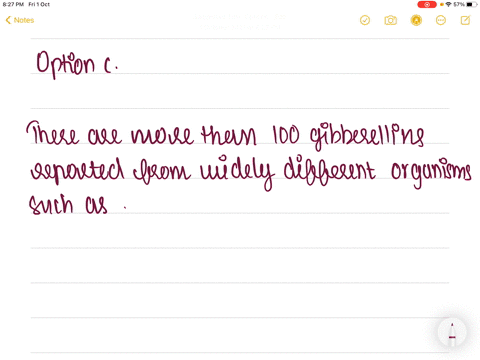 8:27 PM Fri 1 Oct
57%
Notes
Option C.
There are more than 100 gibberellins
reported from widely different organisms
such as .